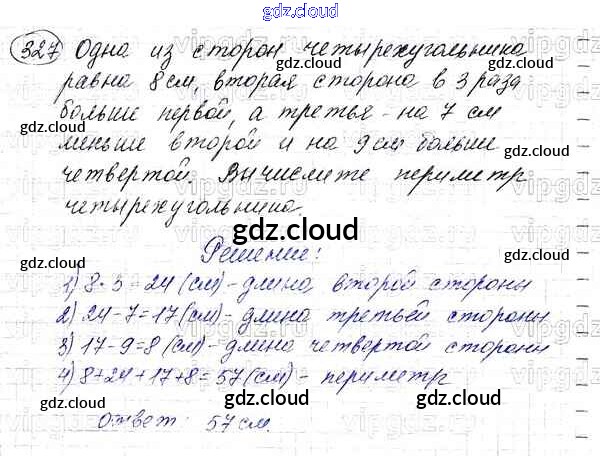 gdz.cloud
327 Одна из сторон четырехугольника
равна 8 см, вторая сторона в 3 раза
больше первой, а третья - на 7 см
меньше второй и на 9 см больше
четвертой. Вычислите периметр
четырехугольника.
gdz.cloud
Решение:
1) 8 · 3 = 24 (см) - длина второй стороны
2) 24 - 7 = 17 (см) - длина третьей стороны
3) 17 - 9 = 8 (см) - длина четвертой стороны
4) 8 + 24 + 17 + 8 = 57 (см) - периметр
Ответ: 57 см.
gdz.cloud